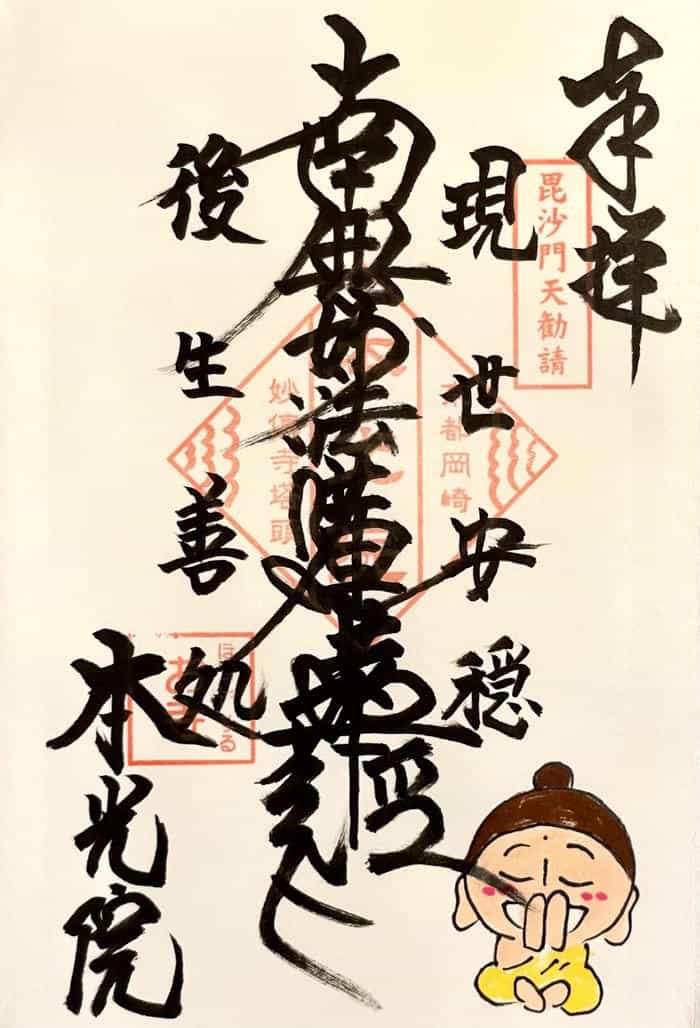 奉拝
毘沙門天勧請
現世安穏
京都岡崎
南無妙法蓮華経
妙傳寺塔頭
後生善処
本光院